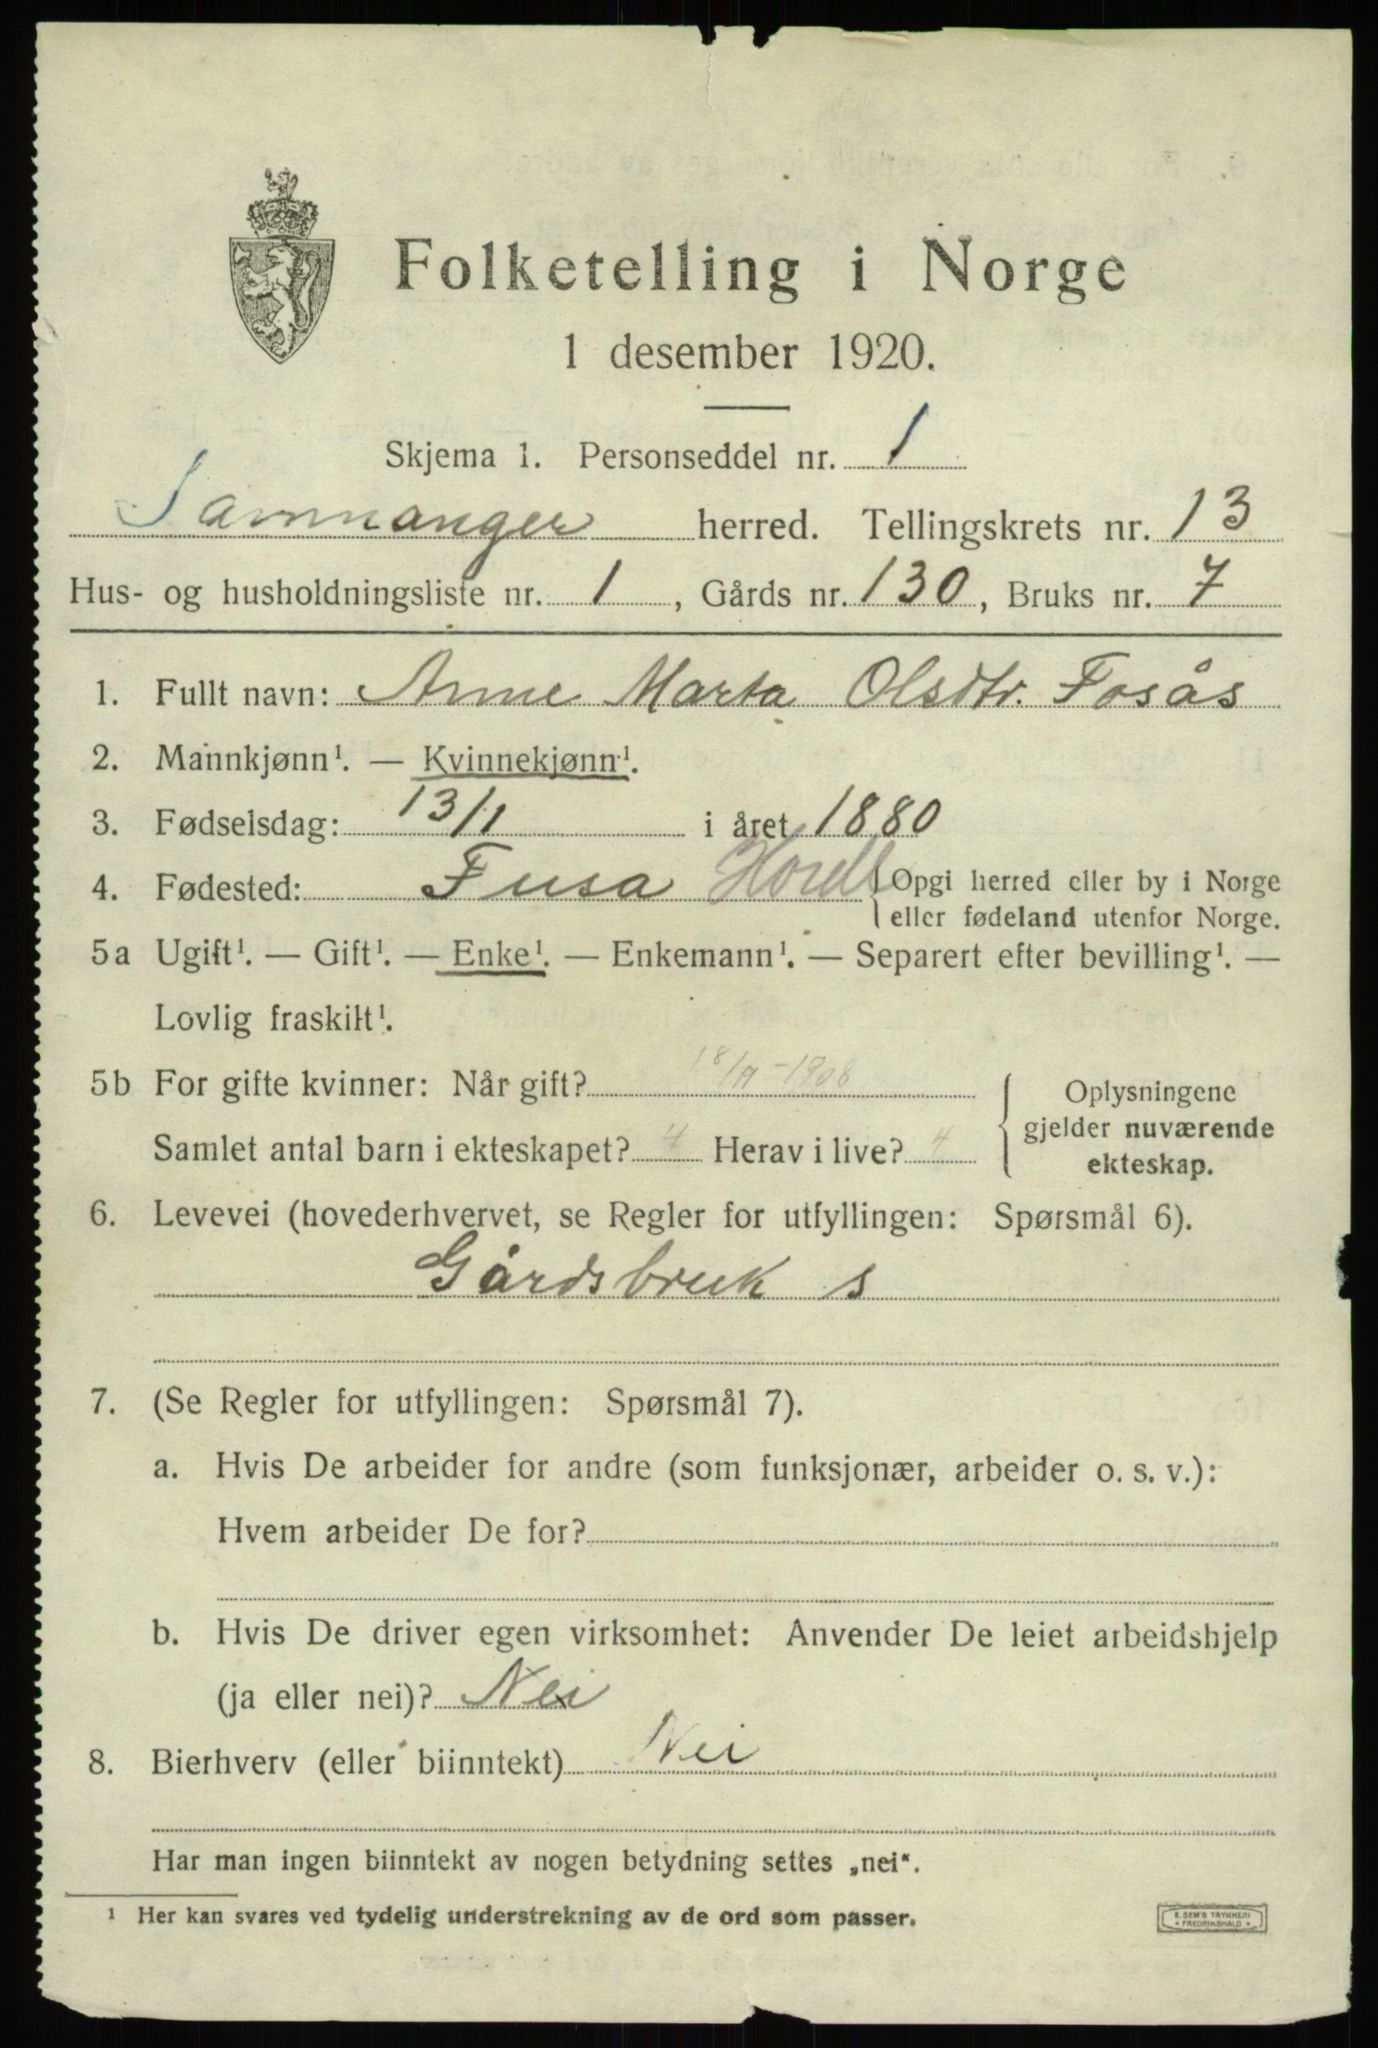 Folketelling i Norge
1 desember 1920.
Skjema 1. Personseddel nr. 1
Samnanger herred. Tellingskrets nr. 13
Hus- og husholdningsliste nr. 1, Gårds nr. 130, Bruks nr. 7
1. Fullt navn: Anne Marta Olsdtr. Fosås
2. Mannkjønn¹. — Kvinnekjønn¹.
3. Fødselsdag: 13/1 i året 1880
4. Fødested: Fusa Hordl { Opgi herred eller by i Norge
eller fødeland utenfor Norge.
5a Ugift¹. — Gift¹. — Enke¹. — Enkemann¹. — Separert efter bevilling¹. —
Lovlig fraskilt¹.
5b For gifte kvinner: Når gift? -1908
Samlet antal barn i ekteskapet? 4 Herav i live? 4
Oplysningene
gjelder nuværende
ekteskap.
6. Levevei (hovederhvervet, se Regler for utfyllingen: Spørsmål 6).
Gårdsbruk s
7. (Se Regler for utfyllingen: Spørsmål 7).
a. Hvis De arbeider for andre (som funksjonær, arbeider o. s. v.):
Hvem arbeider De for?
b. Hvis De driver egen virksomhet: Anvender De leiet arbeidshjelp
(ja eller nei)? Nei
8. Bierhverv (eller biinntekt) Nei
Har man ingen biinntekt av nogen betydning settes „nei“.
¹ Her kan svares ved tydelig understrekning av de ord som passer.
E. SEM'S TRYKKERI
* FREDRIKSHALD *